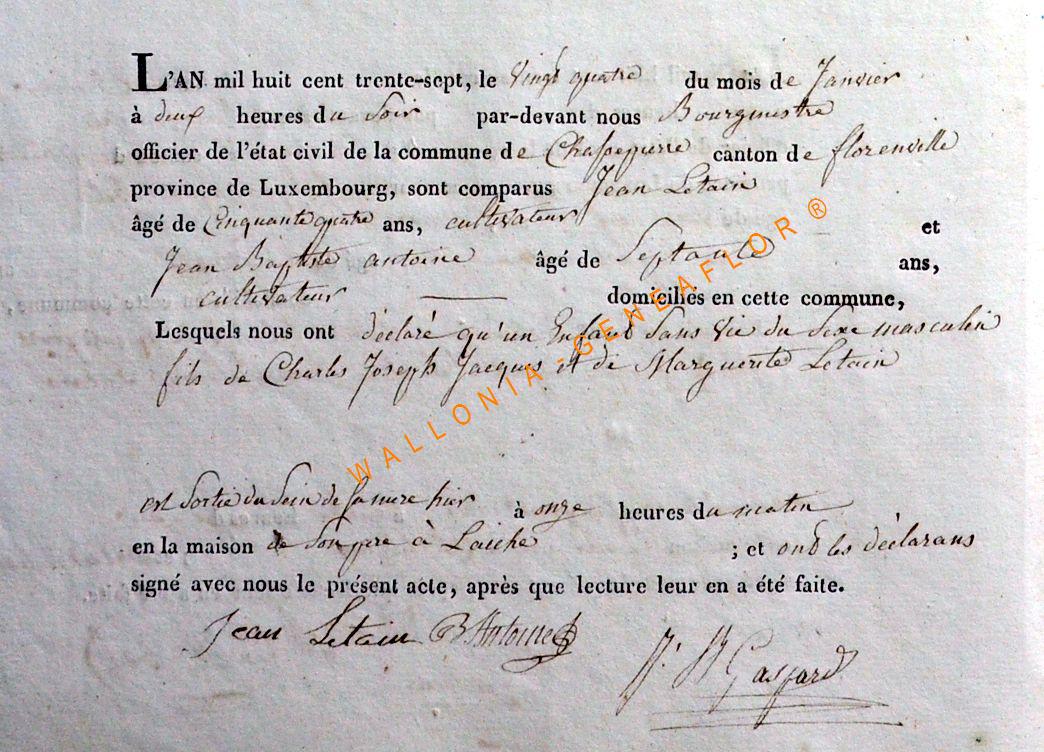 L'AN mil huit cent trente-sept, le vingt quatre du mois de Janvier
à deux heures du Soir par-devant nous Bourgmestre
officier de l'état civil de la commune de Chassepierre canton de florenville
province de Luxembourg, sont comparus Jean Letain
âgé de Cinquante quatre ans, cultivateur et
Jean Baptiste antoine âgé de Septante ans,
cultivateur domiciliés en cette commune,
Lesquels nous ont déclaré qu'un Enfant Sans Vie du Sexe masculin
fils de Charles Joseph Jacques et de Marguerite Letain
est Sortie du Sein de sa mere hier à onze heures du matin
en la maison de Son pere à Laiche ; et ont les déclarans
signé avec nous le présent acte, après que lecture leur en a été faite.
Jean Letain B Antoine
Gaspard
WALLONIA -GENEAFLOR ®